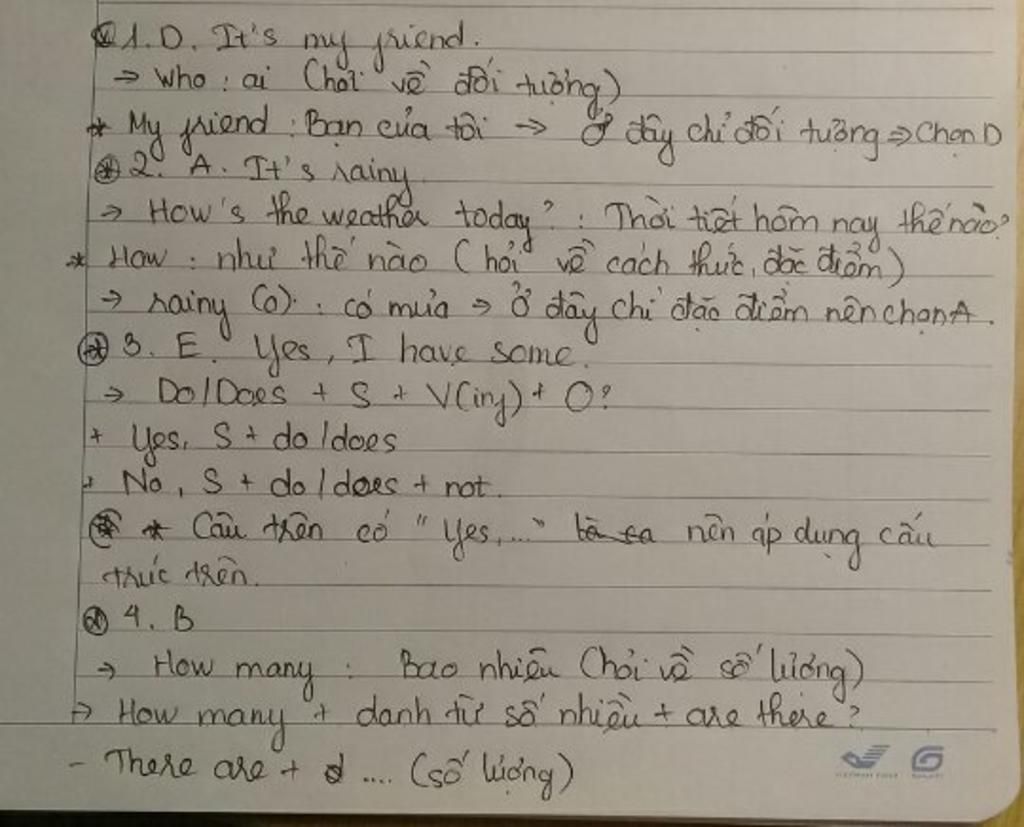 1. D. It's my friend.
→ Who : ai (hỏi về đối tượng)
* My friend : Bạn của tôi → Ở đây chỉ đối tượng ⇒ Chọn D
2. A. It's rainy
→ How's the weather today? : Thời tiết hôm nay thế nào?
* How : như thế nào (hỏi về cách thức, đặc điểm)
→ rainy (a) : có mưa → Ở đây chỉ đặc điểm nên chọn A.
3. E. Yes, I have some.
→ Do/Does + S + V(ing) + O?
+ Yes, S + do/does
+ No, S + do/does + not.
* Câu trên có "Yes,..." nên áp dụng cấu
trúc trên.
4. B
→ How many : Bao nhiêu (hỏi về số lượng)
→ How many + danh từ số nhiều + are there?
- There are + .... (số lượng)